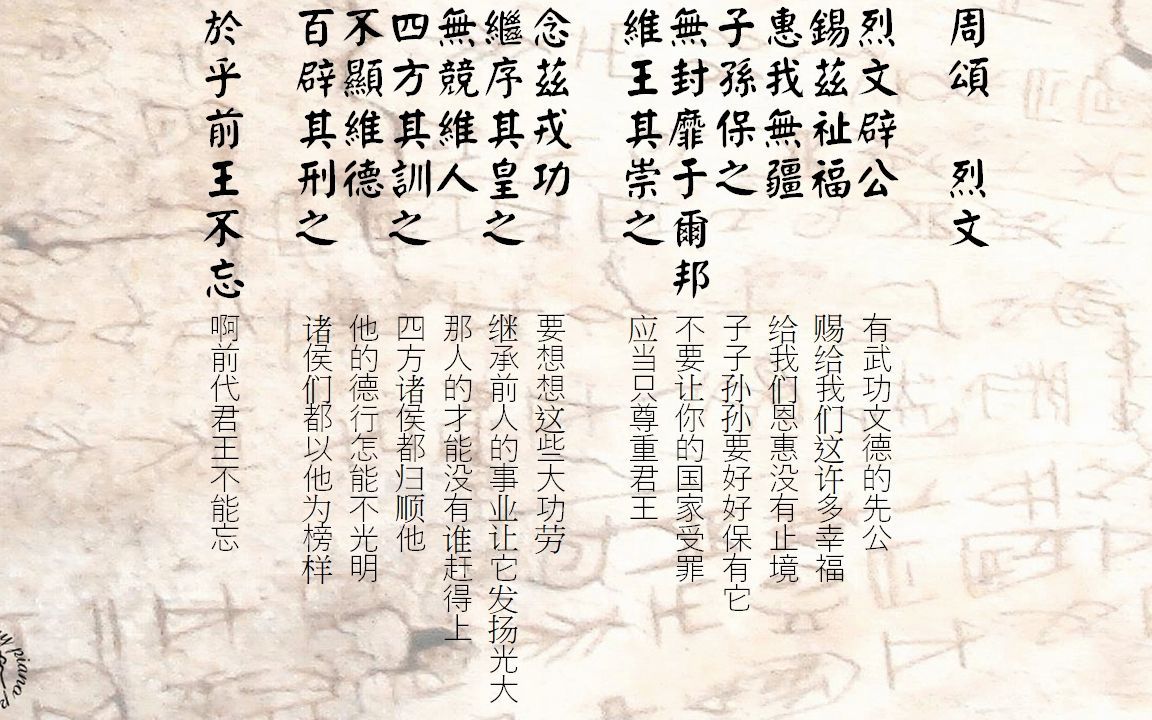 周頌　烈文
烈文辟公
有武功文德的先公
錫茲祉福
赐给我们这许多幸福
惠我無疆
给我们恩惠没有止境
子孫保之
子子孙孙要好好保有它
無封靡于爾邦
不要让你的国家受罪
維王其崇之
应当只尊重君王
念茲戎功
要想想这些大功劳
繼序其皇之
继承前人的事业让它发扬光大
無競維人
那人的才能没有谁赶得上
四方其訓之
四方诸侯都归顺他
不顯維德
他的德行怎能不光明
百辟其刑之
诸侯们都以他为榜样
於乎前王不忘
啊前代君王不能忘
piano